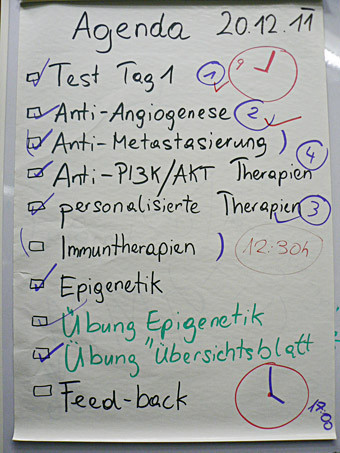 Agenda 20.12.11
Test Tag 1 1 9
Anti-Angiogenese 2
(Anti-Metastasierung)
Anti-PI3K/AKT Therapien 4
personalisierte Therapien 3
(Immuntherapien) 12:30h
Epigenetik
Übung Epigenetik
Übung "Übersichtsblatt
Feed-back